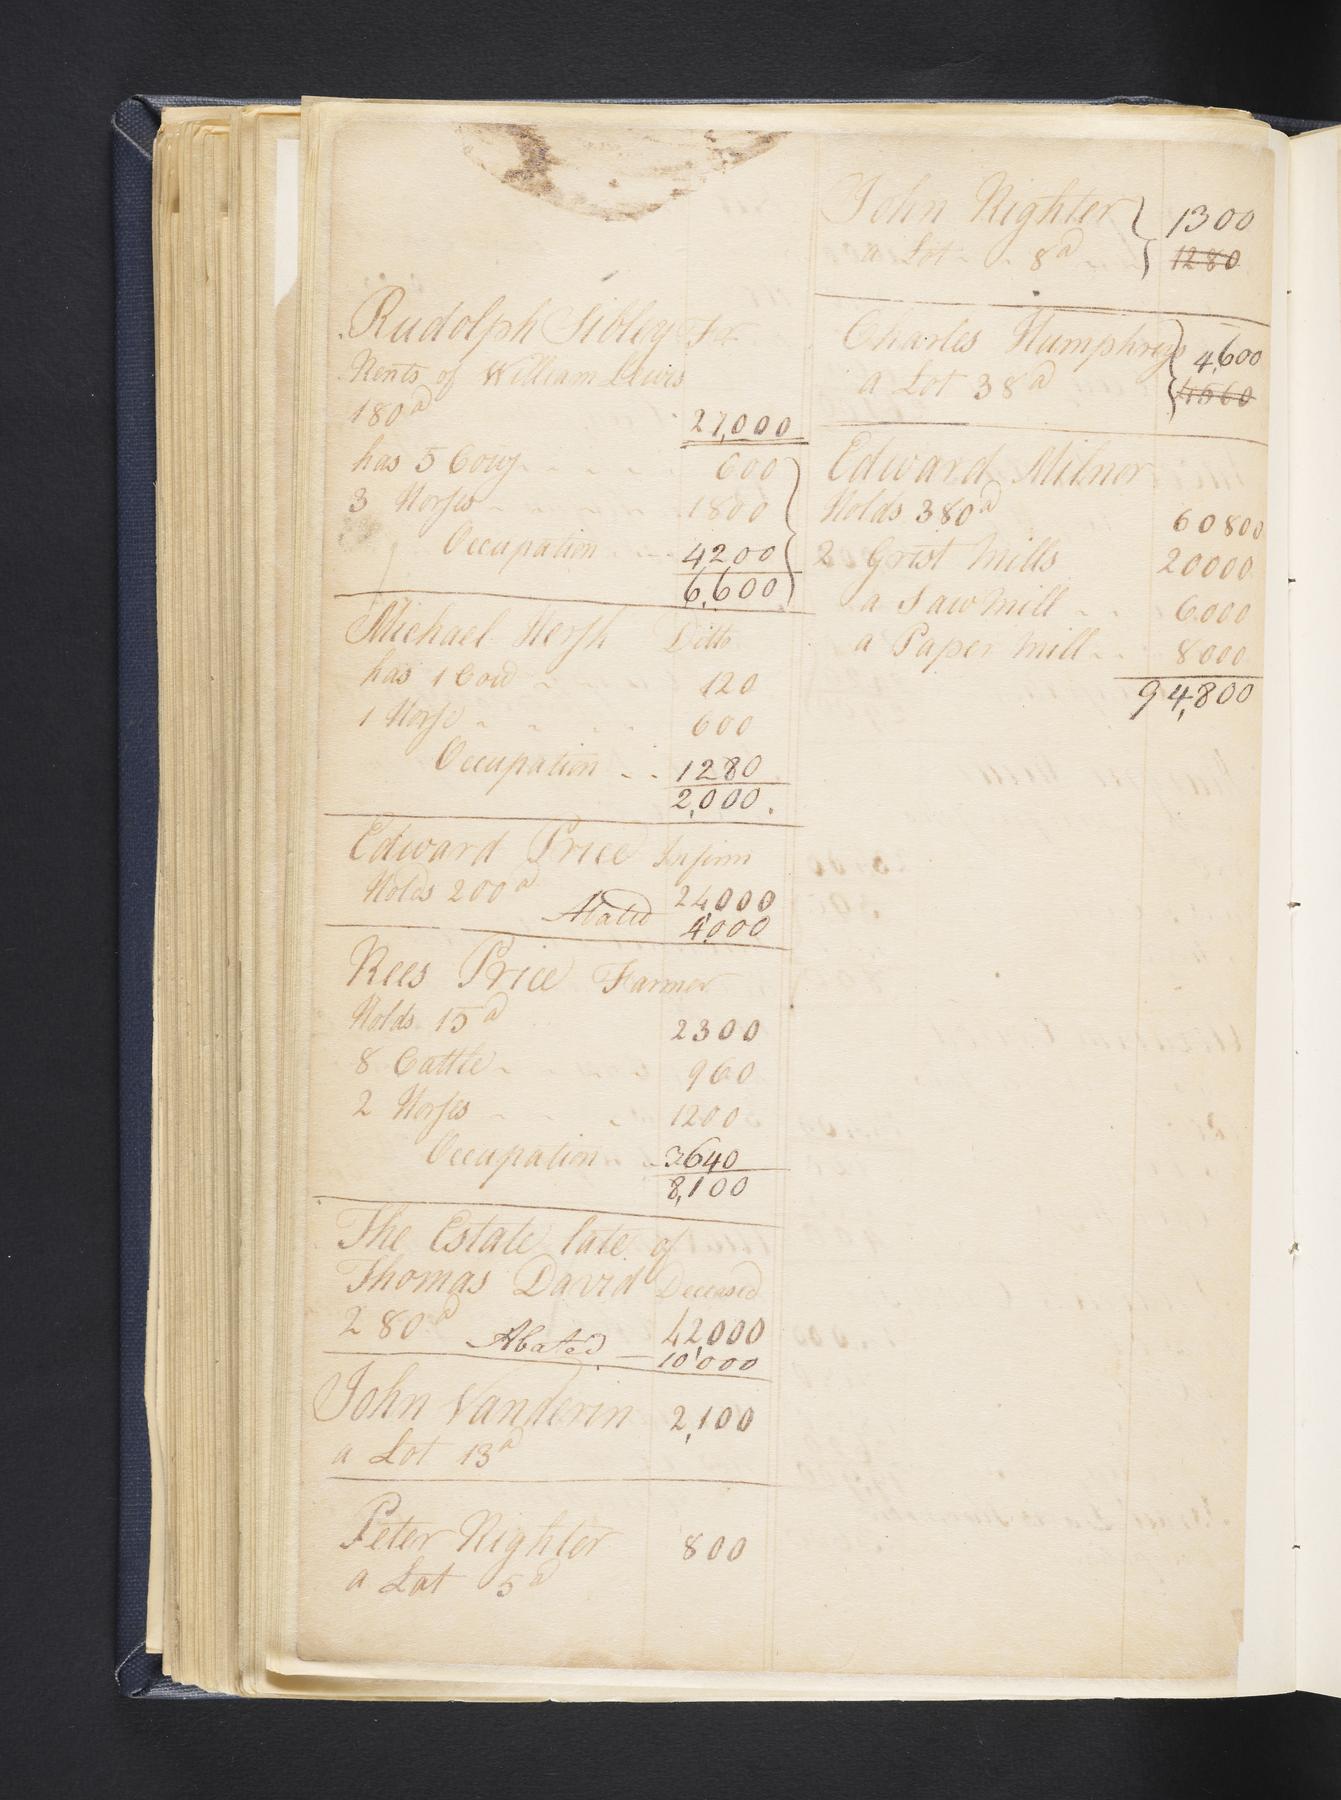 Rudolph Sibley Far
Rents of William Lewis
180a 27,000
has 5 Cows 600
3 Horses 1800
Occupation 4200
6,600
Michael Hersh Ditto
has 1 Cow 120
1 Horse 600
Occupation 1280
2,000.
Edward Price Infirm
Holds 200a 24000
Abated 4,000
Rees Price Farmer
Holds 15a 2300
8 Cattle 960
2 Horses 1200
Occupation 3640
8,100
The Estate late of
Thomas David Deceased
280a 42000
Abated 10,000
John Vanderin 2,100
a Lot 13a
Peter Righter 800
a Lot 5a
John Righter 1300
a Lot 8a 1280
Charles Humphreys 4,600
a Lot 38a 4560
Edward Milnor
Holds 380a 60800
2 Grist Mills 20000
a Saw Mill 6000
a Paper Mill 8000
94,800